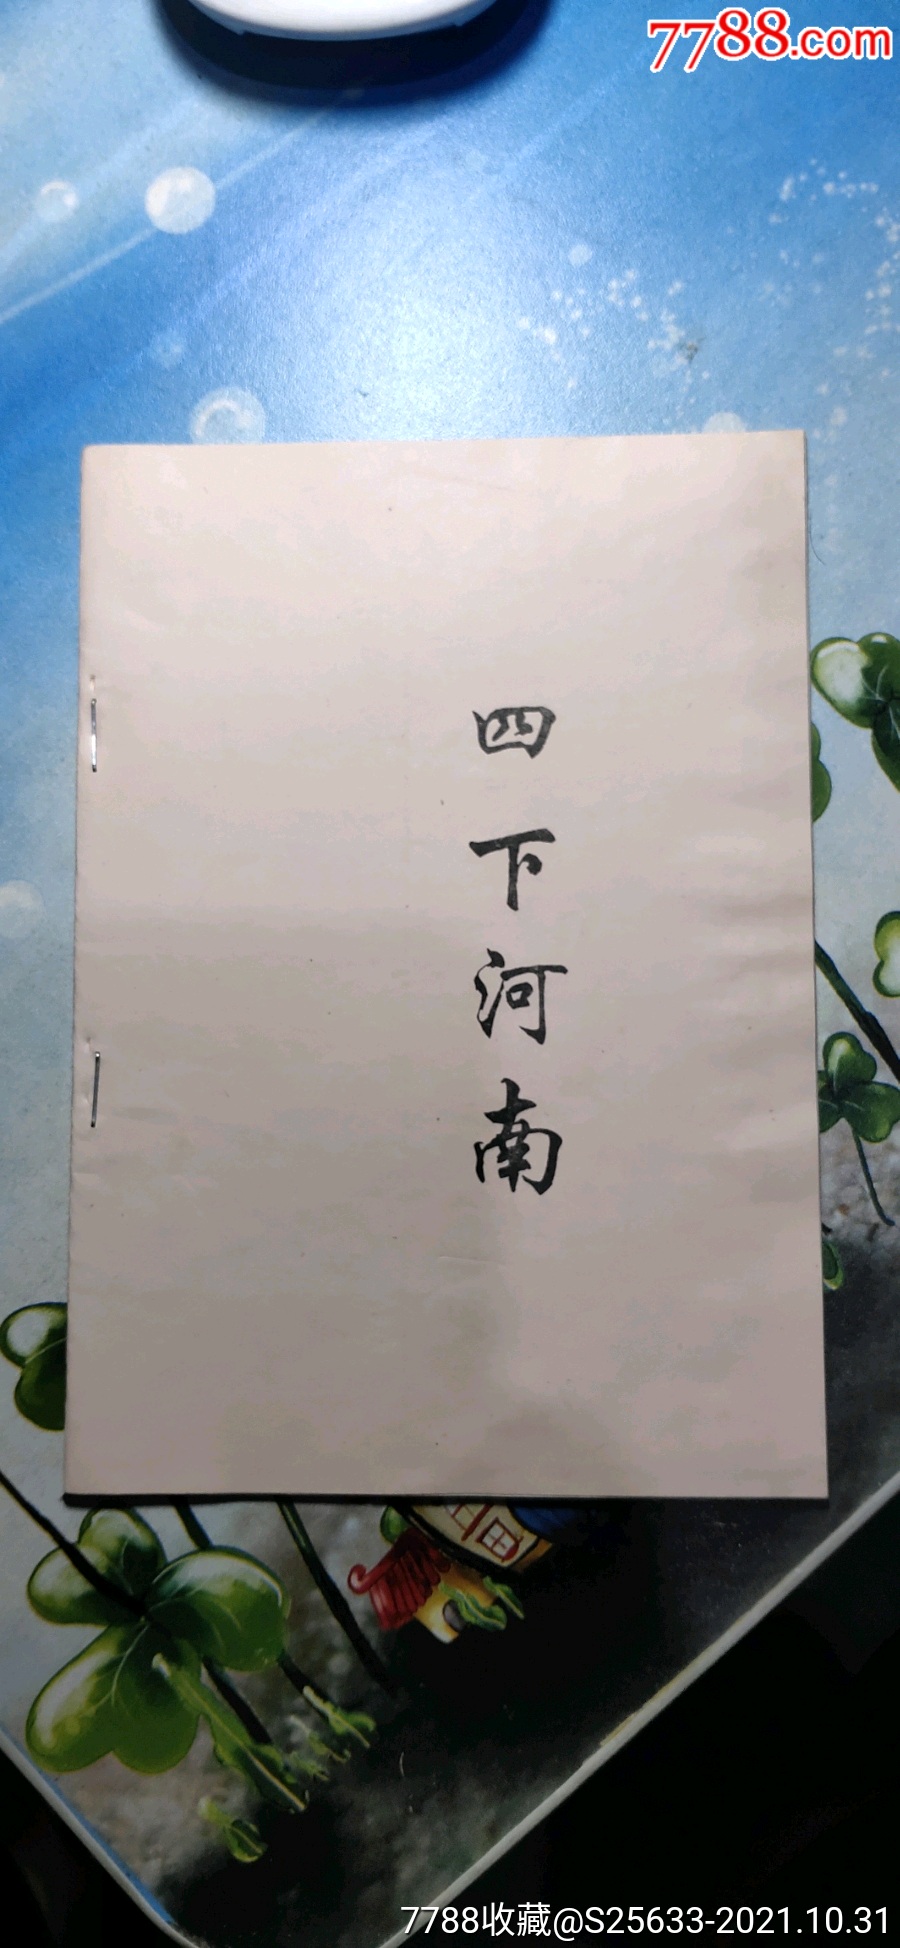 7788.com
四下河南
7788收藏@S25633-2021.10.31